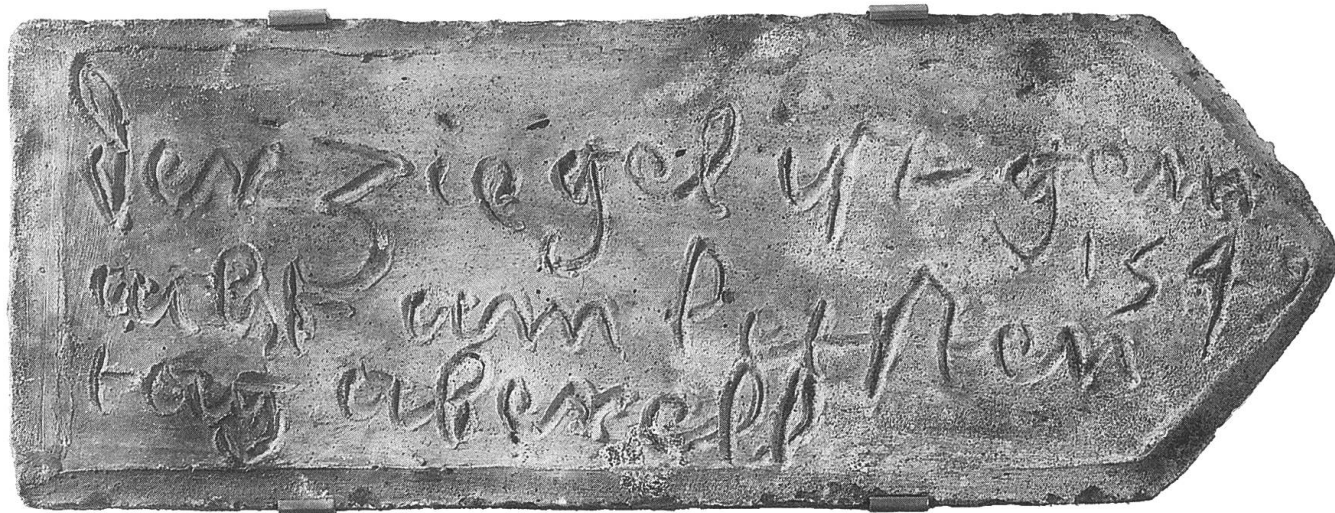 der ziegel yst gem
acht am letsten
tag aberell